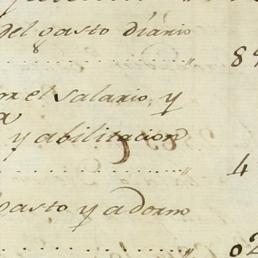 del gasto diario
89
el salario, y
y abilitacion
4
gasto y adorn
02